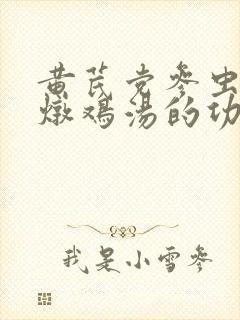 黄芪党参虫
燉鸡汤的功
我是小雪参